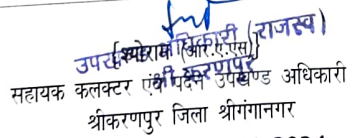 उपखण्ड अधिकारी (राजस्व)
(श्योराम (आर.ए.एस))
श्री करणपुर
सहायक कलक्टर एवं पदेन उपखण्ड अधिकारी
श्रीकरणपुर जिला श्रीगंगानगर